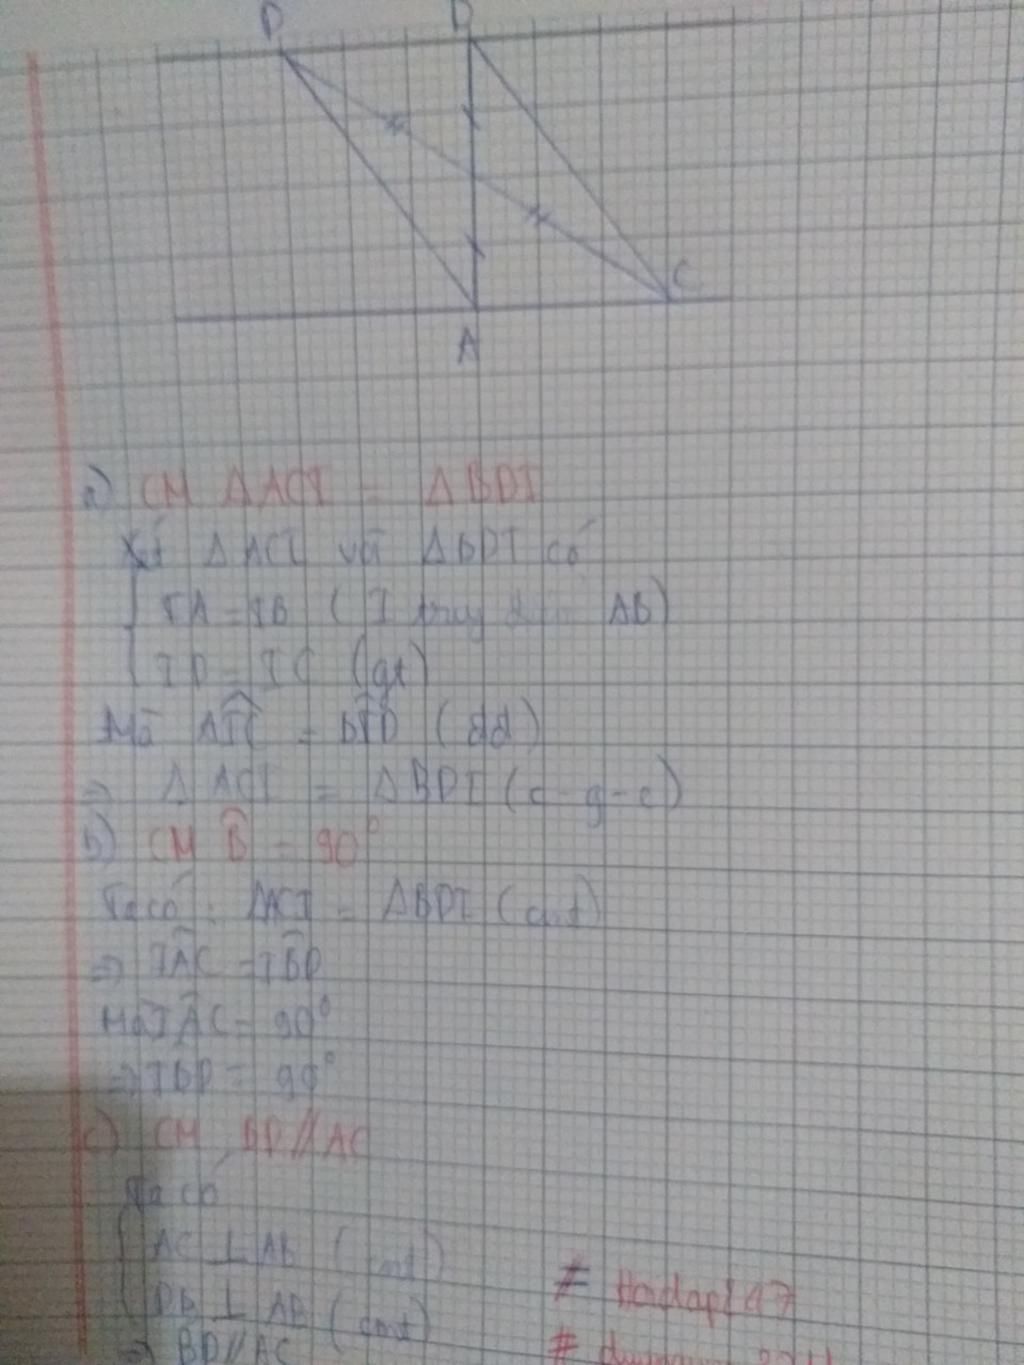 D B
C
A
a) CM ΔACI = ΔBDI
Xét ΔACI và ΔBDI có
IA = IB (I trung điểm AB)
ID = IC (gt)
Mà AIC = BID (dd)
⇒ ΔACI = ΔBDI (c-g-c)
b) CM B̂ = 90°
Ta có: ΔACI = ΔBDI (cmt)
⇒ IÂC = IB̂D
Mà IÂC = 90°
⇒ IBD = 90°
c) CM BD // AC
Ta có
AC ⊥ AB (cmt)
DB ⊥ AB (cmt)
⇒ BD // AC
# Hoidap247
#